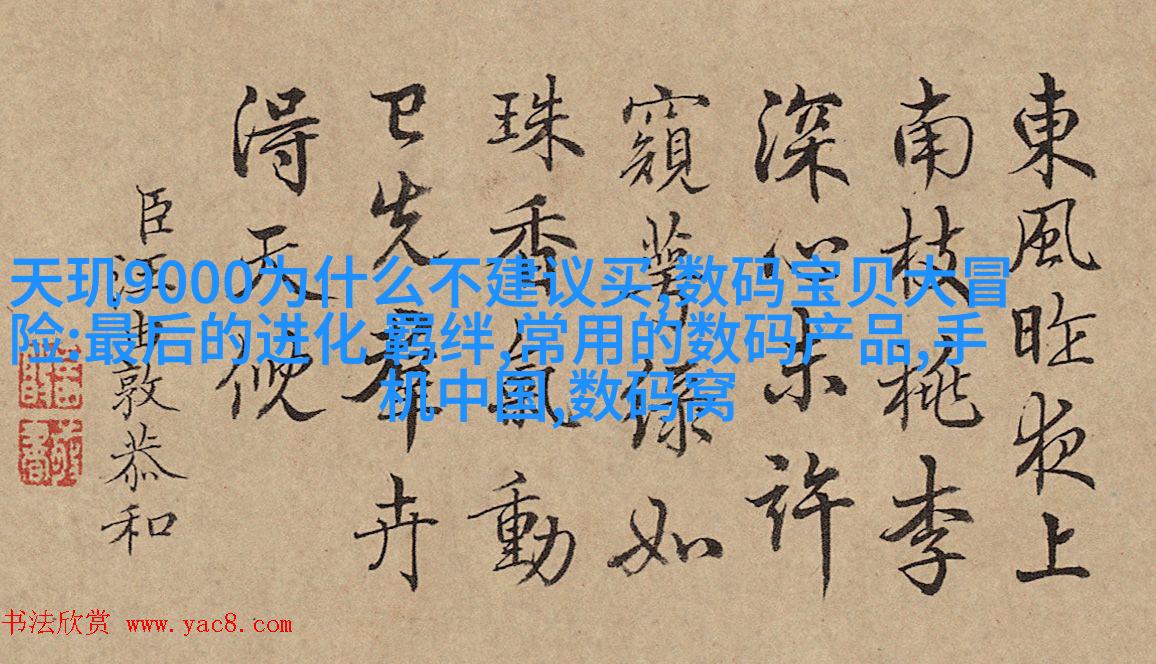 東風昨夜上
南枝桃李
深心未許
窺萼綠如
珠香氣動
已先羣卉
得天倪
臣汪由敦恭和
天玑9000为什么不建议买,数码宝贝大冒
险:最后的进化,羁绊,常用的数码产品,手
机中国,数码窝
书法欣赏 www.yac8.com